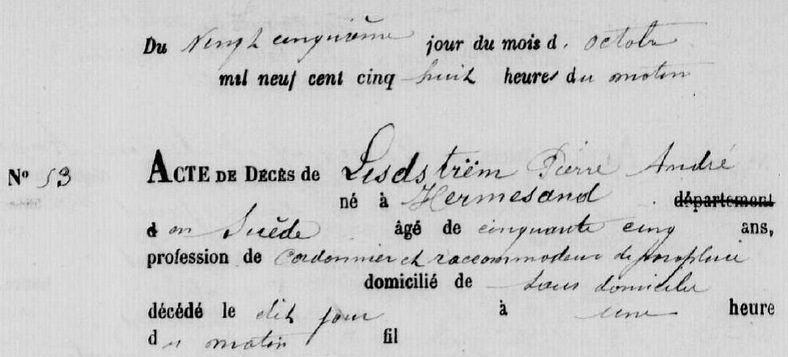 Du Vingt cinquième jour du mois d. octobre
mil neuf cent cinq huit heures du matin
ACTE DE DÉCÈS de Lisdström Pierre André
né à Hermesand département
N° 53
d en Suède âgé de cinquante cinq ans,
profession de Cordonnier et raccommodeur de parapluie
domicilié de sans domicile
décédé le dit jour à une heure
du matin fil